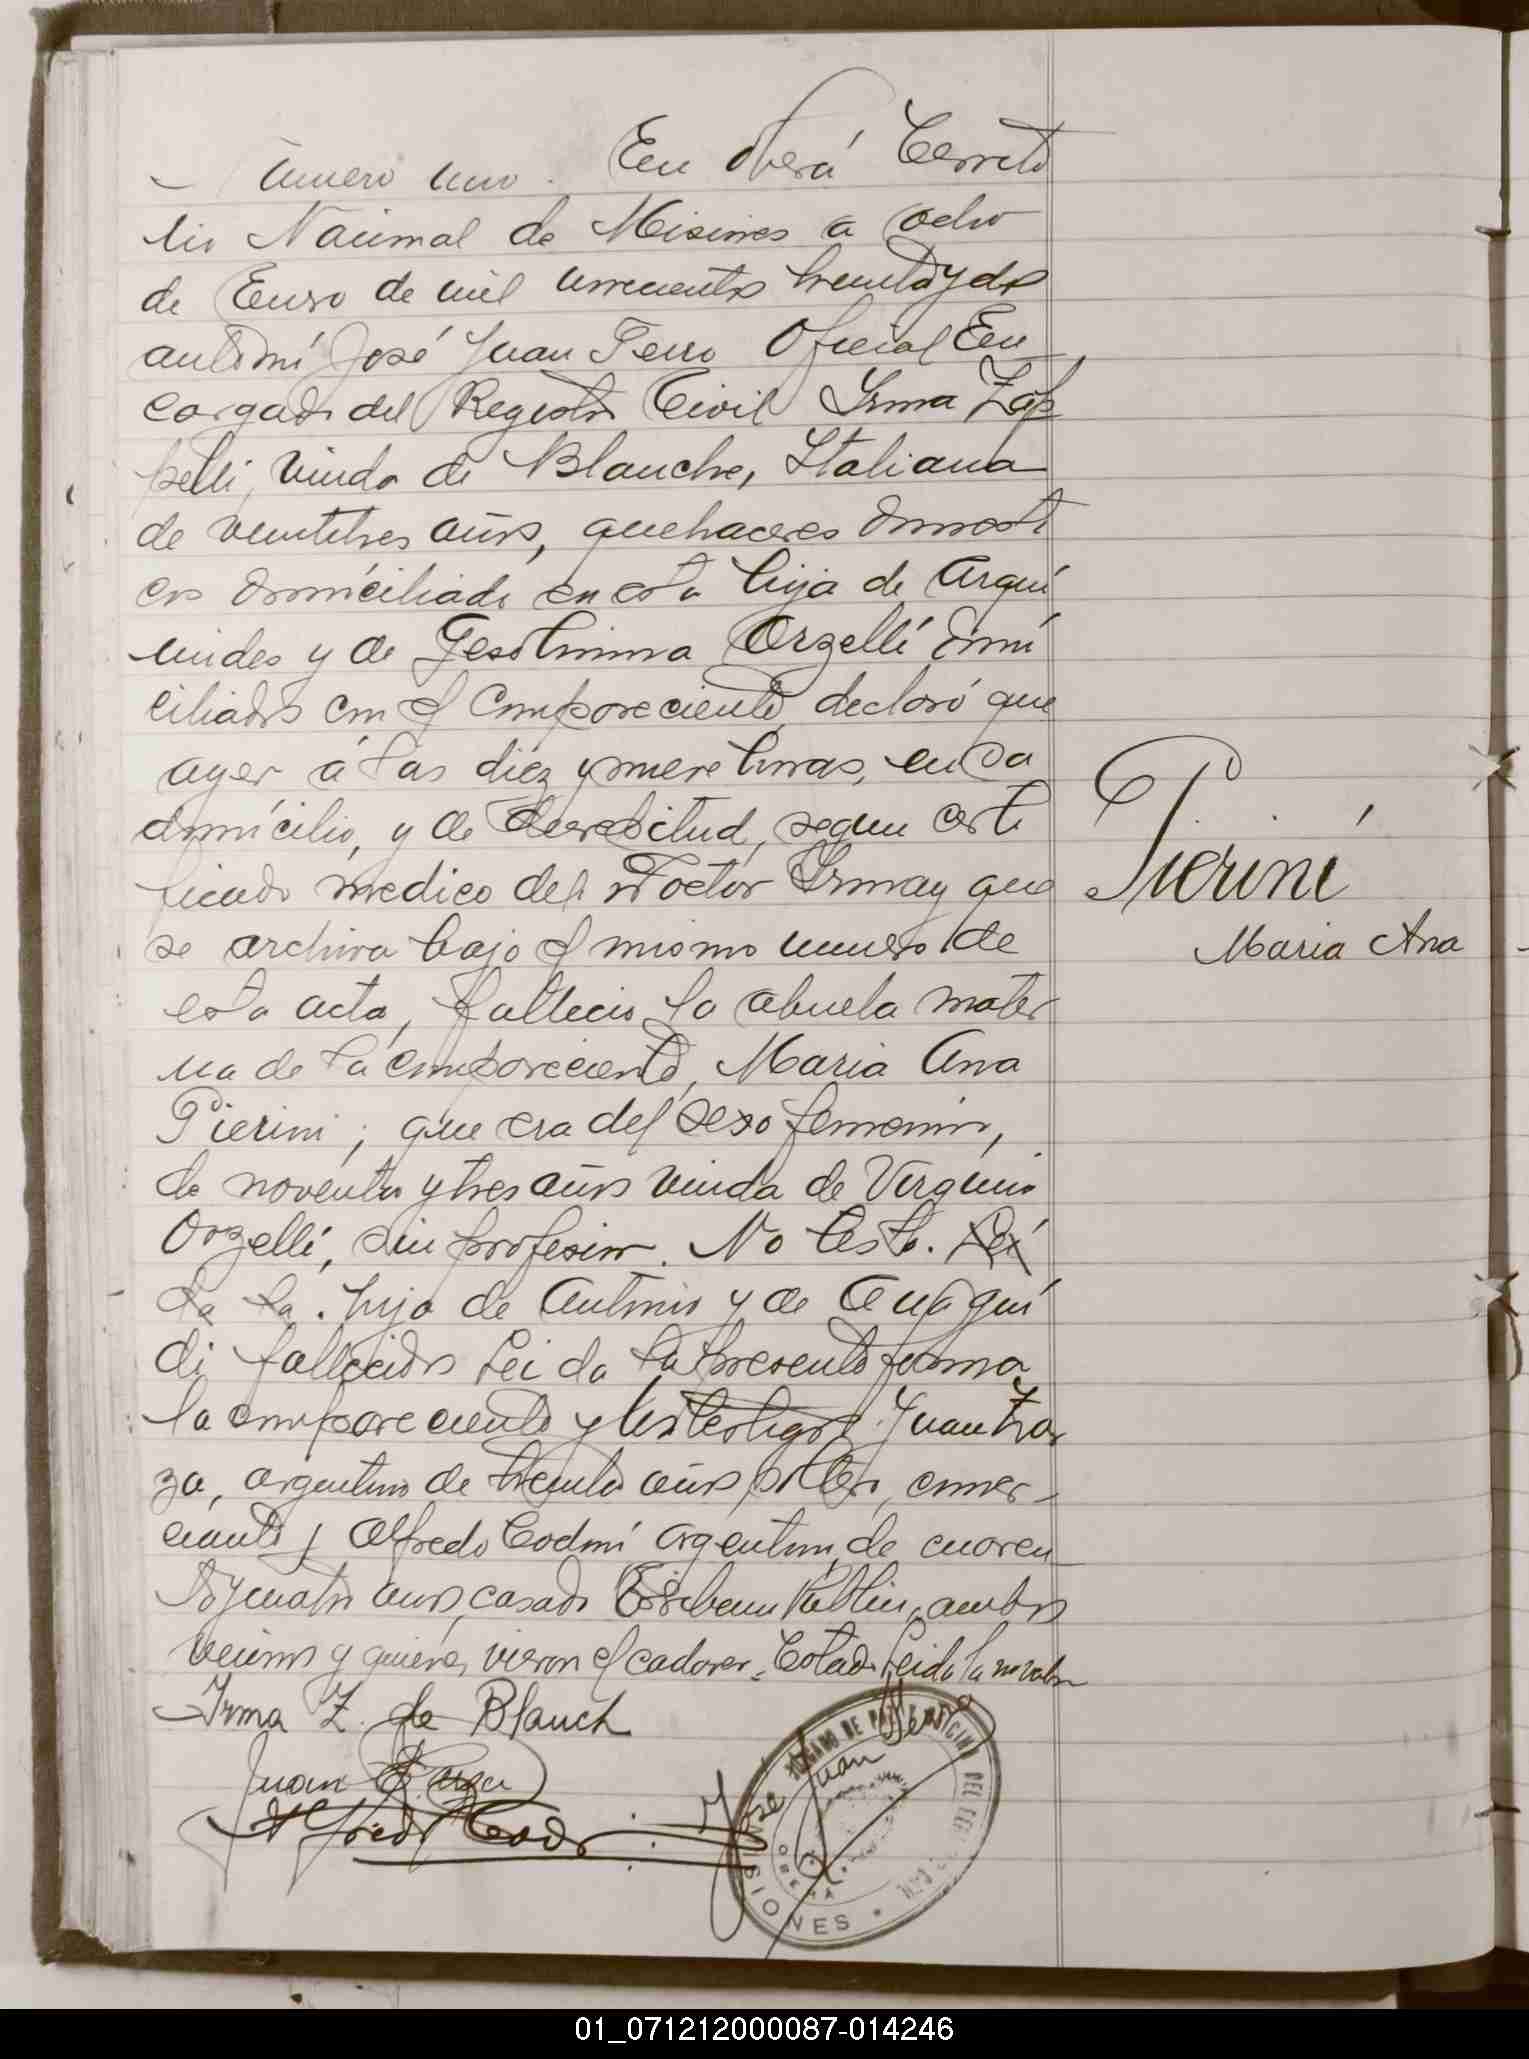 Número uno. En Oberá Territo
rio Nacional de Misiones a ocho
de Enero de mil novecientos treinta y dos
ante mi José Juan Ferro Oficial En
cargado del Registro Civil Irma Zap
pelli, viuda de Blanche, Italiana
de veintitres años, quehaceres domesti
cos domiciliada en esta hija de Arqui
mides y de Orzelli domi
ciliados con el compareciente, declaró que
ayer á las diez y nueve horas, en su
domicilio, y de senectitud, segun certi
ficado medico del Doctor Irmay que
se archiva bajo el mismo numero de
esta acta, fallecio la abuela mater
na de la compareciente, Maria Ana
Pierini; que era del sexo femenino,
de noventa y tres años viuda de Virginio
Orzelli, sin profesion. No testó. Lei
da la. hija de Antonio y de Ana Gui
di fallecidos Leida la presente firma
la compareciente y los testigos Juan Zar
za, argentino de treinta años, soltero, comer-
ciante y Alfredo Codoni argentino, de cuaren
ta y cuatro años, casado Escribano Publico, ambos
vecinos y quienes vieron el cadaver. Testado: Leida la no vale
Irma Z. de Blanch
Juan Zarza
Alfredo Codo
José Juan
Pierini
Maria Ana
JUZGADO DE PAZ
OBERA
MISIONES
01_071212000087-014246